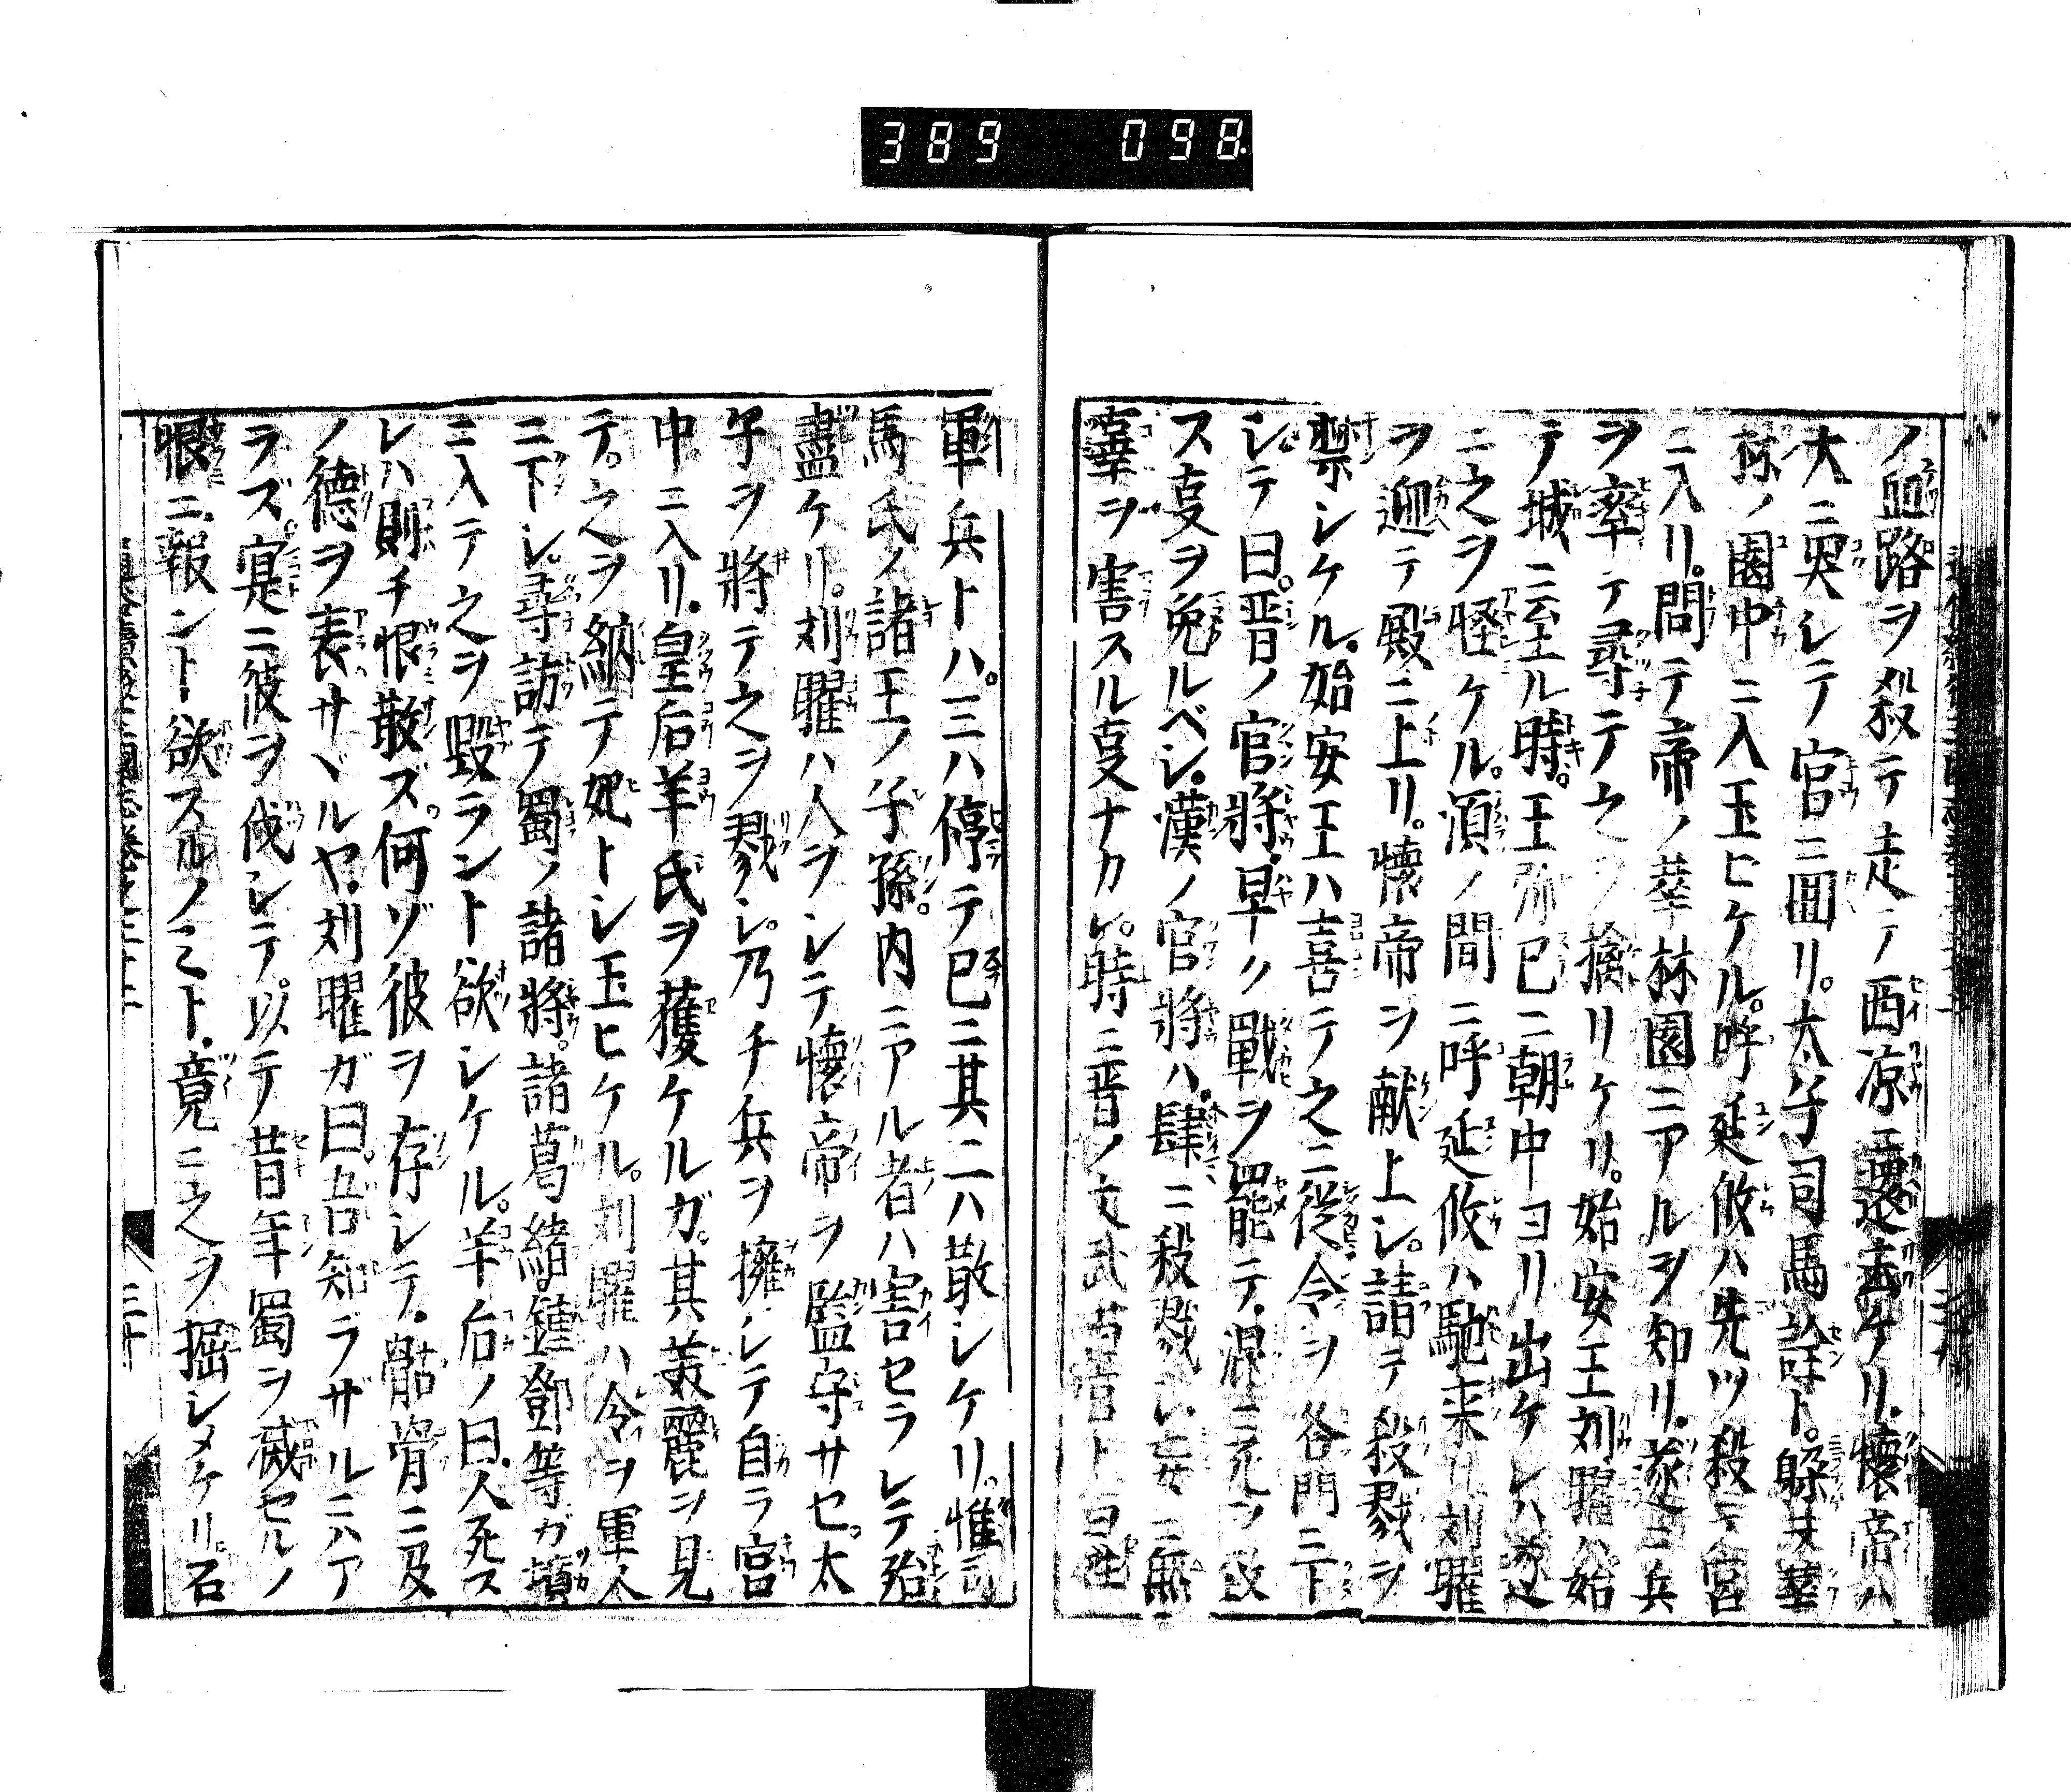 389 098
ノ血路ヲ殺テ走テ西凉ニ還去ケリ懷帝ハ
大ニ哭シテ官ニ囬リ太子司馬詮ト躱夫華
林ノ園中ニ入玉ヒケル呼延攸ハ先ツ殺テ宮
ニ入リ問テ帝ノ華林園ニアルヲ知リ遂ニ兵
ヲ率テ尋テ之ヲ擒リケリ始安王刘曜ハ始
テ城ニ至ル時王弥已ニ朝中ヨリ出ケレハ遂
ニ之ヲ怪ケル湏ノ間ニ呼延攸ハ馳来リ刘曜
ヲ迎テ殿ニ上リ懷帝ヲ献上シ請テ殺戮ヲ
禁シケル始安王ハ喜テ之ニ從令ヲ各門ニ下
シテ曰晋ノ官將早ク戰ヲ罷テ混ニ死ヲ
ス叓ヲ免ルベシ漢ノ官將ハ肆ニ殺戮シ妄ニ無
辜ヲ害スル叓ナカレ時ニ晋ノ文武
軍兵トハ三ハ停テ已ニ其二ハ散シケリ惟司
馬氏ノ諸王ノ子孫内ニアル者ハ害セラレテ殆
盡ケリ刘曜ハ人ヲシテ懷帝ヲ監守サセ太
子ヲ將テ之ヲ戮シ乃チ兵ヲ擁シテ自ラ宮
中ニ入リ皇后羊氏ヲ獲ケルガ其美麗ヲ見
テ之ヲ納テ妃トシ玉ヒケル刘曜ハ令ヲ軍太
ニ下シ尋訪テ蜀ノ諸將諸葛緒鍾鄧等ガ墳
ニ入テ之ヲ毀ラント欲シケル羊后ノ曰人死ス
レハ則チ恨散ズ何ゾ彼ヲ存シテ骷骨ニ及
ノ德ヲ表サヾルヤ刘曜ガ曰吾知ラザルニハア
ラズ寔ニ彼ヲ伐シテ以テ昔年蜀ヲ滅セルノ
恨ニ報ント欲スルノミト竟ニ之ヲ掘シメケリ石
三十